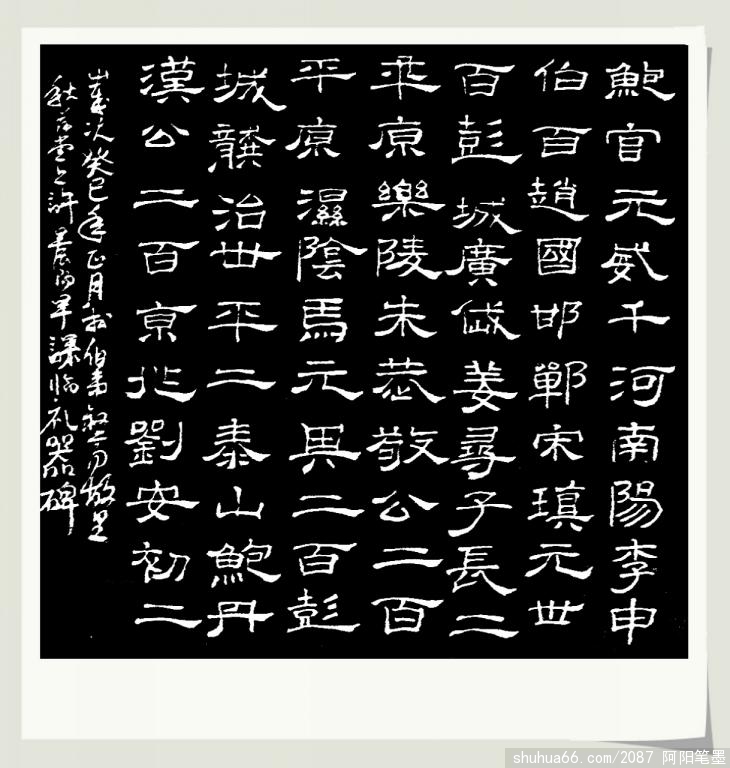 鮑宮元威千河南陽李申
伯百趙國邯鄲宋瑱元世
百彭城廣戚姜尋子長二
平原樂陵朱恭敬公二百
平原濕陰馬元冀二百彭
城龔治世平二泰山鮑丹
漢公二百京兆劉安初二
歲次癸巳年正月於伯故里
秋堂之許晨早課臨礼器碑
shuhua66.com/2087 阿阳笔墨